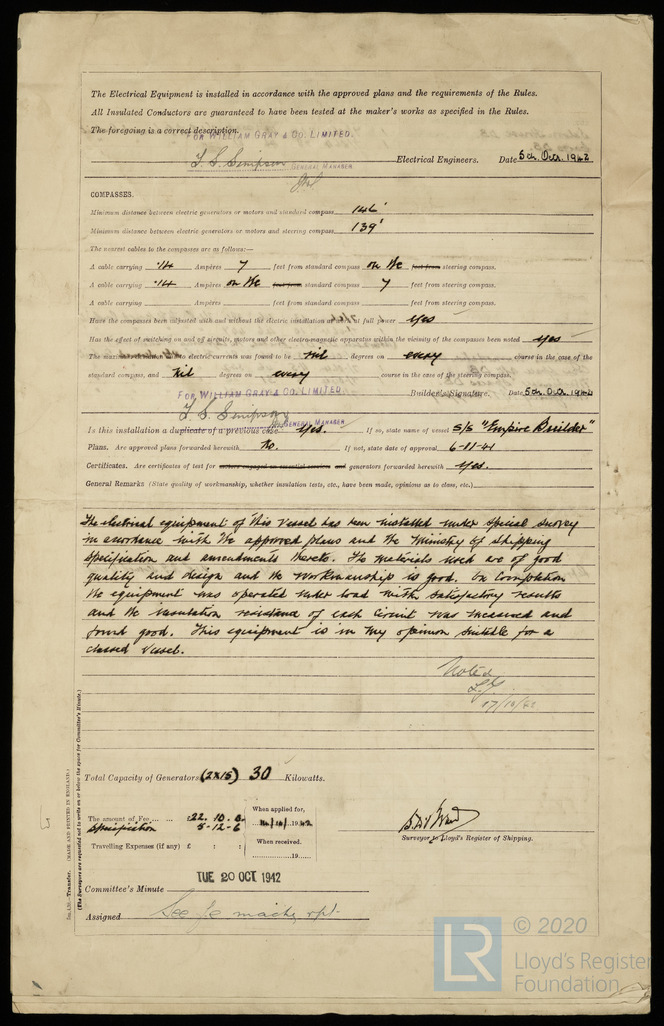 The Electrical Equipment is installed in accordance with the approved plans and the requirements of the Rules.
All Insulated Conductors are guaranteed to have been tested at the maker's works as specified in the Rules.
The foregoing is a correct description.
FOR WILLIAM GRAY & CO. LIMITED.
GENERAL MANAGER Electrical Engineers. Date 5th Oct. 1942
COMPASSES.
Minimum distance between electric generators or motors and standard compass 146'
Minimum distance between electric generators or motors and steering compass 139'
The nearest cables to the compasses are as follows:—
A cable carrying .14 Ampères 7 feet from standard compass on the feet from steering compass.
A cable carrying .14 Ampères on the feet from standard compass 7 feet from steering compass.
A cable carrying Ampères feet from standard compass feet from steering compass.
Have the compasses been adjusted with and without the electric installation at work at full power Yes
Has the effect of switching on and off circuits, motors and other electro-magnetic apparatus within the vicinity of the compasses been noted Yes
The maximum deviation due to electric currents was found to be Nil degrees on every course in the case of the
standard compass, and Nil degrees on every course in the case of the steering compass.
FOR WILLIAM GRAY & CO. LIMITED
GENERAL MANAGER Builder's Signature. Date 5th Oct. 1942
Is this installation a duplicate of a previous case Yes. If so, state name of vessel S/S "Empire Builder"
Plans. Are approved plans forwarded herewith No. If not, state date of approval 6-11-41
Certificates. Are certificates of test for motors engaged on essential services and generators forwarded herewith Yes.
General Remarks (State quality of workmanship, whether insulation tests, etc., have been made, opinions as to class, etc.)
The electrical equipment of this vessel has been installed under special survey
in accordance with the approved plans and the Ministry of Shipping
specification and amendments thereto. The materials used are of good
quality and design and the workmanship is good. On completion
the equipment was operated under load with satisfactory results
and the insulation resistance of each circuit was measured and
found good. This equipment is in my opinion suitable for a
classed vessel.
Noted
17/10/42
Total Capacity of Generators (2x15) 30 Kilowatts.
The amount of Fee ... £ 22. 10. 0. When applied for,
Specification 5-12-6 19 42
Travelling Expenses (if any) £ : : When received.
19
Surveyor to Lloyd's Register of Shipping.
TUE 20 OCT 1942
Committee's Minute
Assigned See
(MADE AND PRINTED IN ENGLAND.)
Transfer.
(The Surveyors are requested not to write on or below the space for Committee's Minute.)
© 2020
LR Lloyd's Register
Foundation